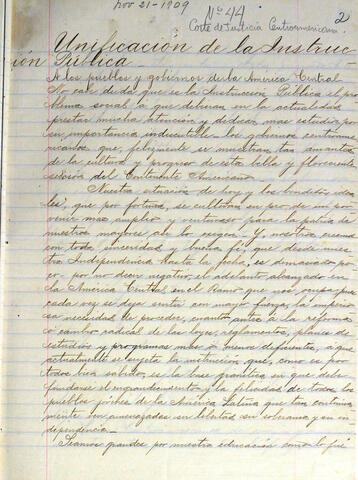 Nov 21-1909
Nº 44
2
Corte de Justicia Centroamericana
Unificación de la Instruc-
ción Pública.
A los pueblos y gobiernos de la América Central
No cabe duda que es la Instrucción Pública el pro-
blema social a que debieran en la actualidad
prestar mucha atención y dedicar mas estudio por
su importancia indiscutible los gobiernos centroame-
ricanos que, felizmente se muestran tan amantes
de la cultura y progreso de esta bella y floreciente
sección del Continente Americano.
Nuestra situación de hoy y los bondades idea-
les, que por fortuna, se cultivan en pro de un por-
venir mas amplio y venturoso para la patria de
nuestros mayores así lo exigen. Y nosotros creemos
con toda sinceridad y buena fe, que desde nues-
tra Independencia hasta la fecha, es demasiado po-
co, por no decir negativo, el adelanto alcanzado en
la América Central en el Ramo que nos ocupa, pues
cada vez se deja sentir con mayor fuerza la imperio-
sa necesidad de proceder, cuanto antes a la reforma
o cambio radical de las leyes, reglamentos, planes de
estudios y programas mas o menos deficientes, a que
actualmente se sujeta la institución que, como es por
todos bien sabido, es la base granítica en que deben
fundarse el engrandecimiento y la felicidad de todos los
pueblos jóvenes de la América Latina que tan continua-
mente ven amenazadas su libertad su soberanía y su in-
dependencia.
Seamos grandes por nuestra educación como lo fué